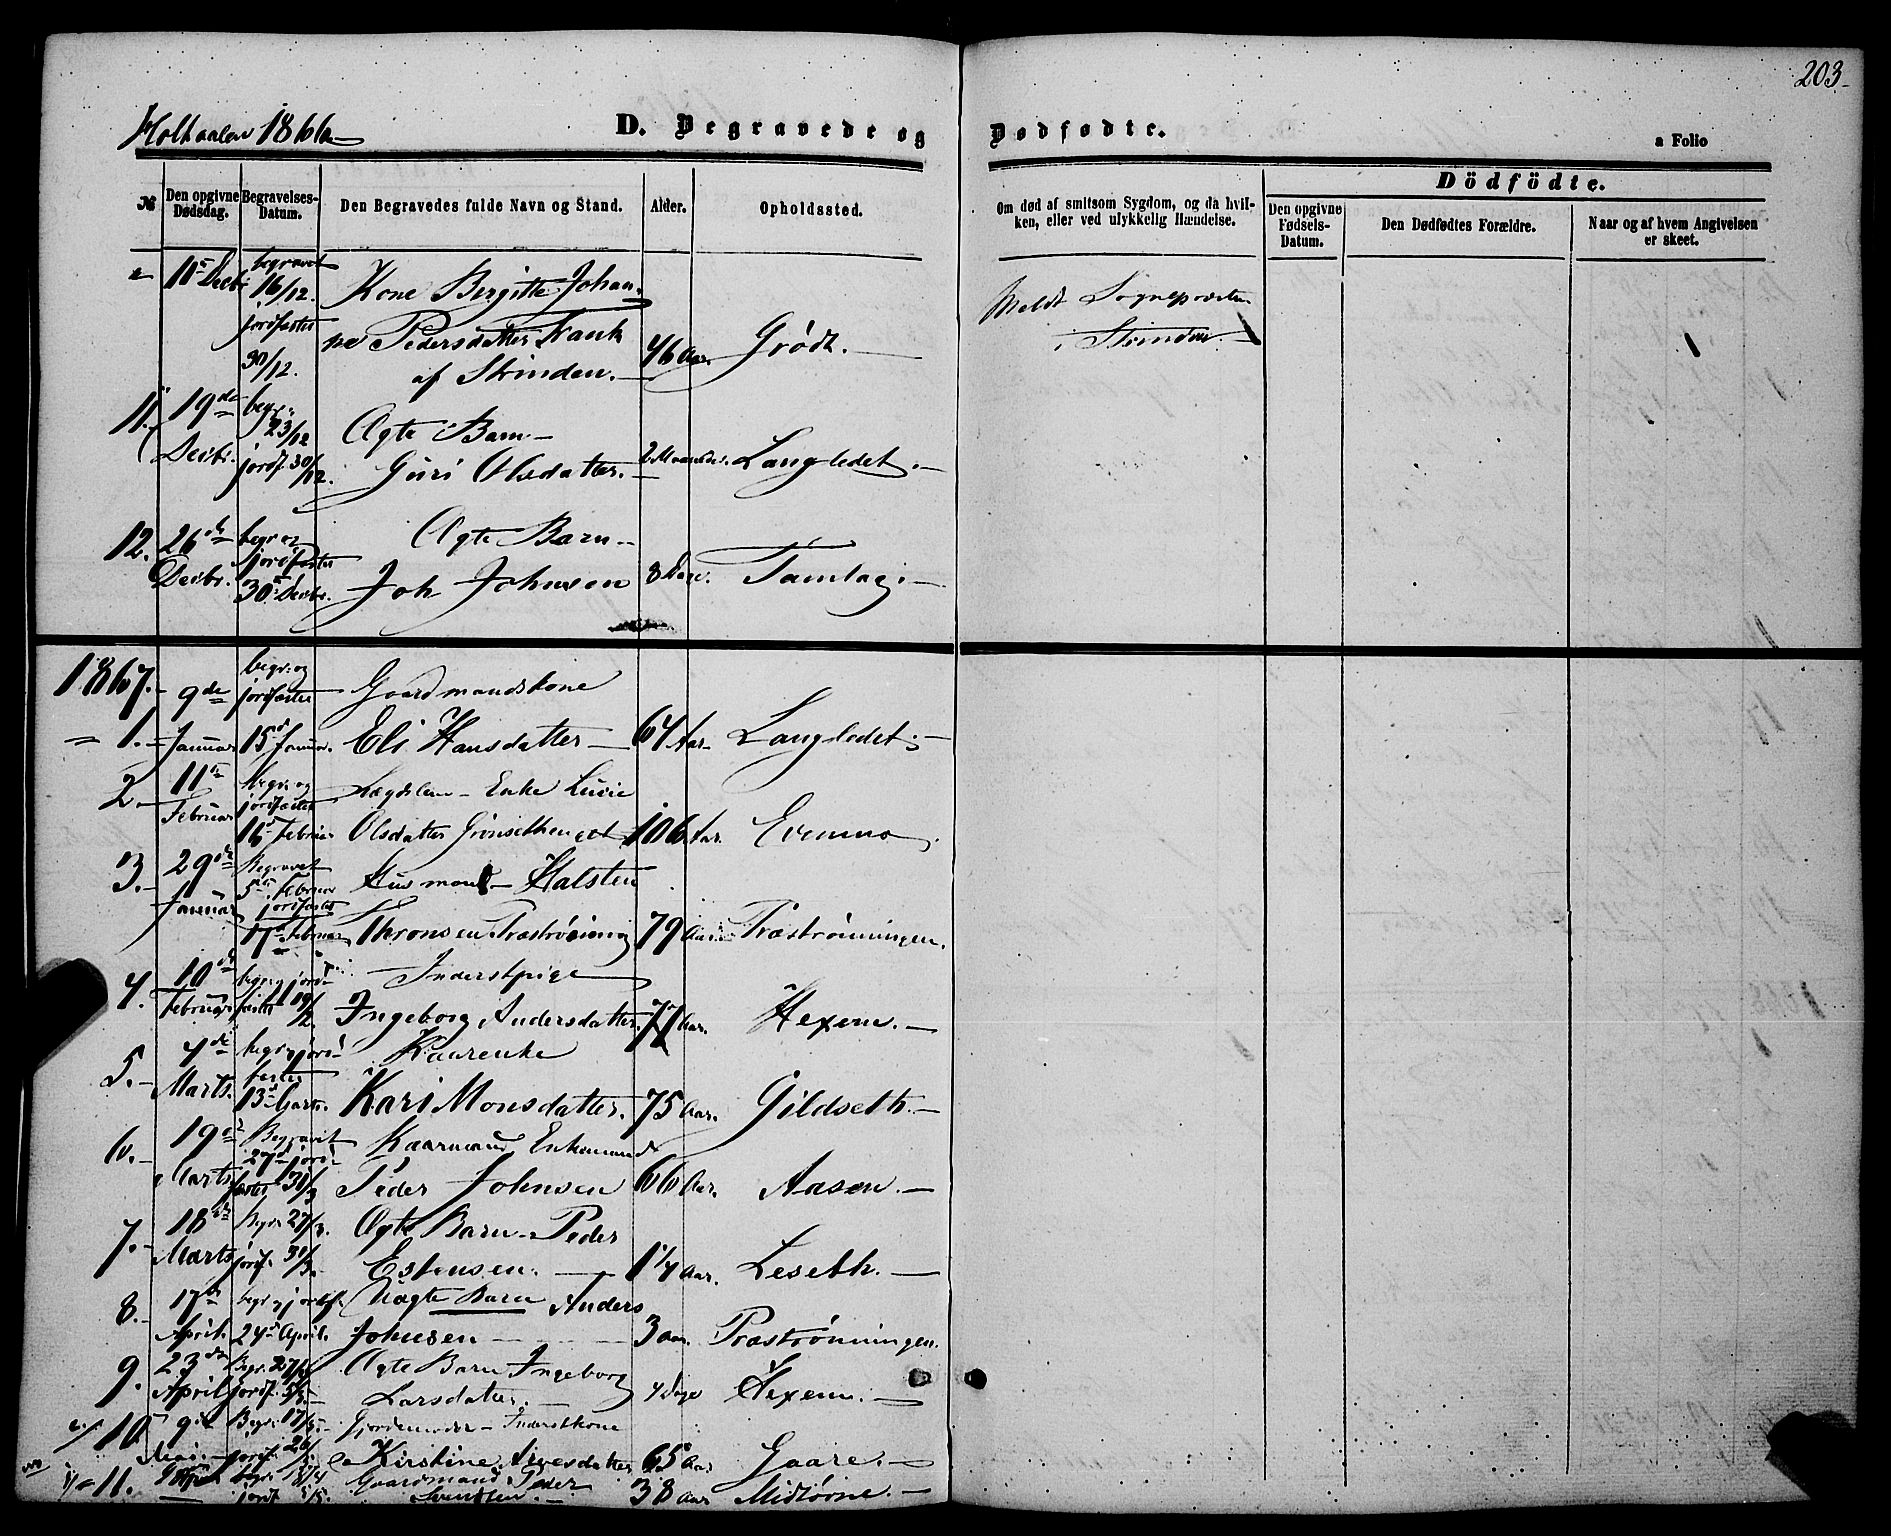 203
Holtaalen 1866
D. Begravede og Dødfødte.
a Folio
№
Den opgivne Dødsdag.
Begravelses-Datum.
Den Begravedes fulde Navn og Stand.
Alder.
Opholdssted.
Om død af smitsom Sygdom, og da hvil-
ken, eller ved ulykkelig Hændelse.
Dödfödte.
Den opgivne Fødsels-Datum.
Den Dødfødtes Forældre.
Naar og af hvem Angivelsen er skeet.
begravet
16/12.
Kone Birgitte Johan-
jordfæstet
ne Pedersdatter
46 Aar.
Grødt.
30/12.
af Strinden.
Meldt Sognepræsten
i Strinden
11.
19de
Decbr.
begr.
23/12
jordf. 30/12.
Ægte Barn
Guri Olsdatter.
2 Maaneder.
Langledet.
12.
26de
Decbr.
begr. og
jordfæstet
30. Decbr.
Ægte Barn
Joh Johnsen
8 Dage.
Tamlag
1867.
1.
9de
Januar
begr. og
jordfæstet
15 Januar.
Gaardmandskone
Eli Hansdatter
64 Aar
Langledet
2.
11te
Februar
begr. og
jordfæstet
16 Februar
Lægdslem Enke
Olsdatter Grønsethenget
106 Aar.
Evenmo
3.
29de
Januar
Begravet
5te Februar
jordfæstet
17 Februar
Husmand Halsten
Thronsen Præstrønning
79 Aar.
Præstrønningen.
4.
10de
Februar
begr. og jord-
fæstet 19/2
Inderstpige
Ingeborg Andersdatter.
77 Aar.
Hexem.
5.
4de
Marts.
begr. og jord-
fæstet
13 Marts.
Kaarenke
Kari Monsdatter.
75 Aar.
Gildseth.
6.
19de
Marts
Begravet
27 jord-
fæstet 30/3
Kaarmand Enkemand
Peder Johnsen
66 Aar.
Aasen.
7.
18de
Marts
Begr. 27/3.
jordf. 30/3.
Ægte Barn Peder
Estensen.
1 1/4 Aar.
Leseth.
8.
17de
April.
begr. og jordf.
24 April.
Uægte Barn Anders
Johnsen
3 Aar.
Præstrønningen.
9.
23de
April
Begr. 27/4
jordf. 5/5.
Ægte Barn Ingeborg
Larsdatter.
4 Dage
Hexem.
10
9de
Mai
Begr. 17/5.
jordf. 26/5.
Gjordemoder Inderstkone
Kirstine Siversdatter
65 Aar
Gaare.
11.
begr. 18/4
jordf. 5/5.
Gaardmand Peder
Svendsen.
38 Aar
Midtørne.